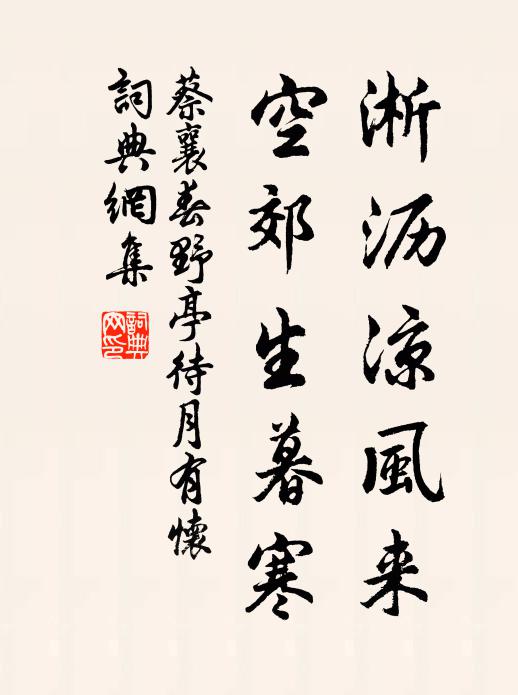 淅沥凉風来
空郊生暮寒
蔡襄春野亭待月有懷
詞典網集
詞典
网印